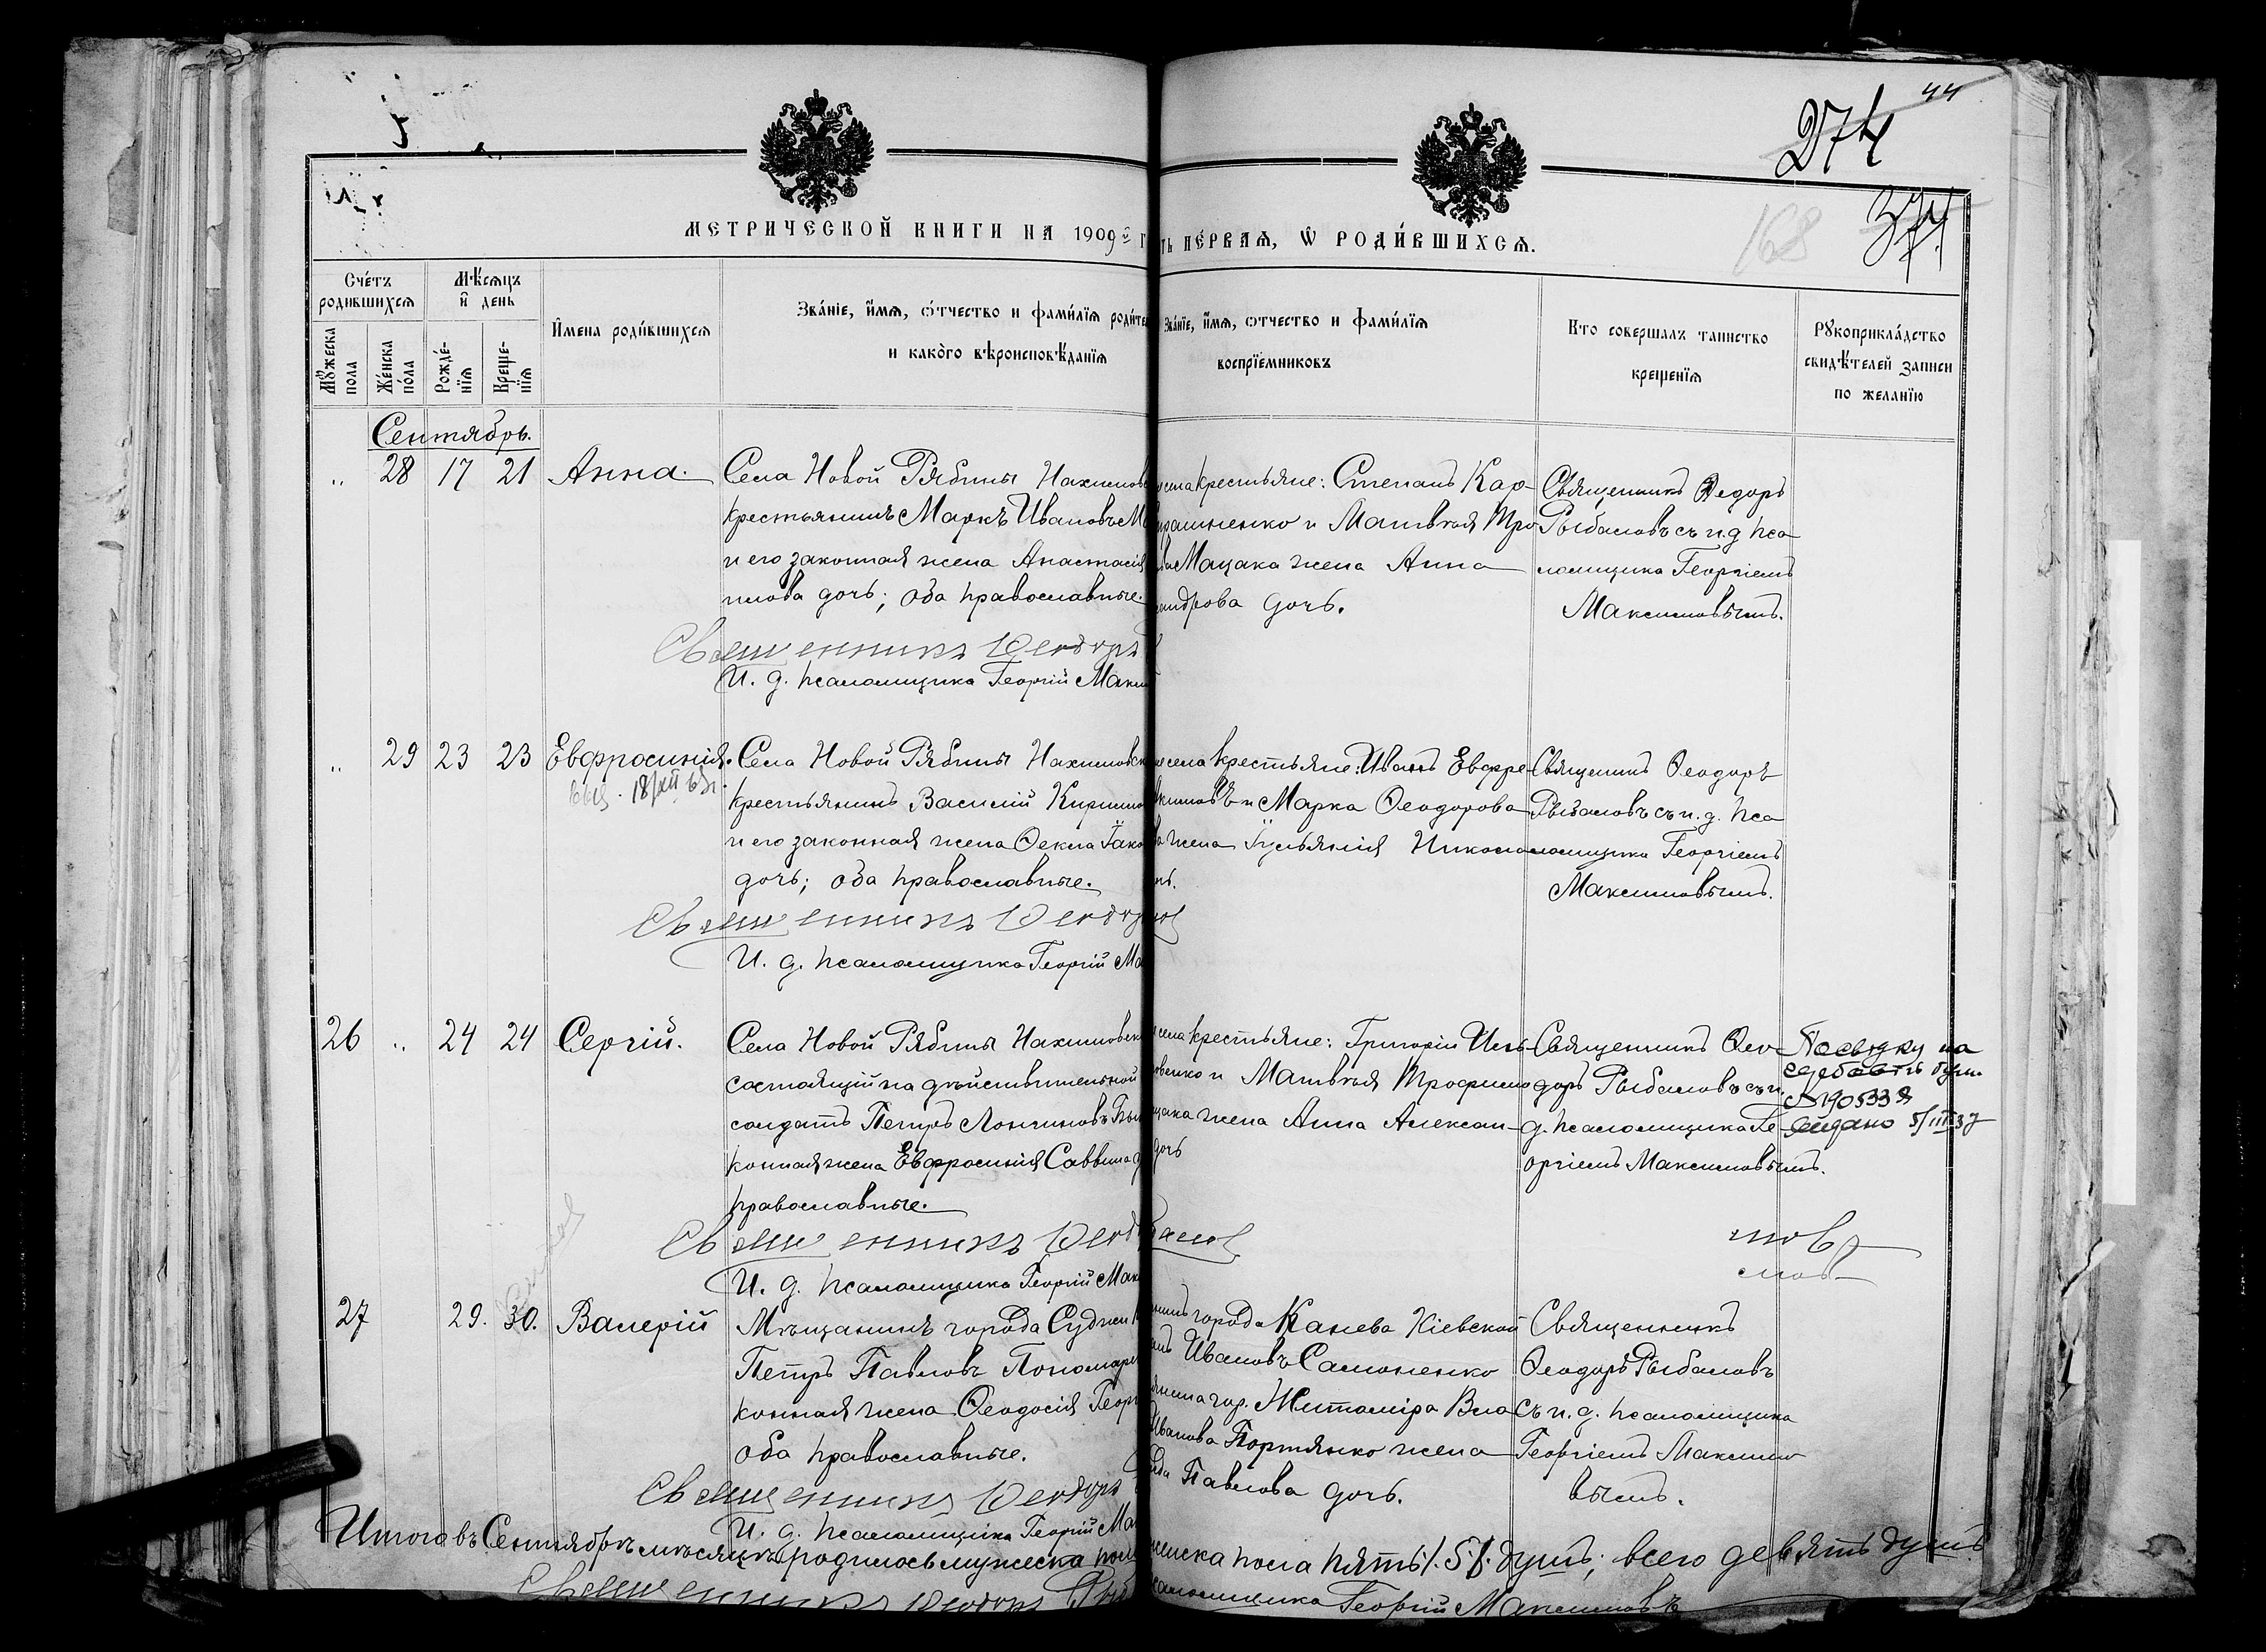 44
274
374
168
МЕТРИЧЕСКОЙ КНИГИ НА 1909й Г
ТЬ ПЕРВАЯ, Ѡ РОДИВШИХСЯ.
Счетъ родившихся
Мужеска пола
Женска пола
Мѣсяцъ и день
Рожденія
Крещенія
Имена родившихся
Званіе, имя, отчество и фамилія родите
и какого вѣроисповѣданія
Званіе, имя, отчество и фамилія
воспріемниковъ
Кто совершалъ таинство
крещенія
Рукоприкладство
свидѣтелей записи
по желанію
Сентябрь.
„ 28 17 21 Анна.
Села Новой Рябины Накимовс
крестьянинъ Маркъ Ивановъ М
и его законная жена Анастасія
нлова дочь; оба православные.
Священникъ Ѳеодоръ
И. д. псаломщика Георгій Макси
села крестьяне: Степанъ Кар
рашненко и Матвѣя Тро
ва Мацака жена Анна
сандрова дочь.
Священникъ Ѳедоръ
Рыбаловъ съ и. д. пса
ломщика Георгіемъ
Максимовымъ.
„ 29 23 23 Евфросинія.
Села Новой Рябины Накимовск
крестьянинъ Василій Кирилло
и его законная жена Ѳекла Іако
дочь; оба православные.
Священникъ Ѳеодор
И. д. псаломщика Георгій Ма
села крестьяне: Иванъ Евфре
акимовъ и Марка Ѳеодорова
ва жена Іульянія Никола
нь.
Священникъ Ѳеодоръ
Рыбаловъ съ и. д. пса
ломщика Георгіемъ
Максимовымъ.
26 „ 24 24 Сергій.
Села Новой Рябины Накимовск
состоящій на дѣйствительной
солдатъ Петръ Лонгиновъ Бы
конная жена Евфросинія Саввина д
православные.
Священникъ Ѳеод
И. д. псаломщика Георгій Мак
села крестьяне: Григорій Иль
овенко и Матвѣя Трофимо
цака жена Анна Алексан
дочь
балов
Священникъ Ѳео
доръ Рыбаловъ съ и.
д. псаломщика Ге
оргіемъ Максимовымъ.
на
№ 190533
видано 5/III 37
мов
27 29. 30. Валерій
Мѣщанинъ города Суджи К
Петръ Павловъ Пономаре
конная жена Ѳеодосія Георг
оба православные.
Священникъ Ѳеодоръ
И. д. псаломщика Георгій Ма
нинъ города Канева Кіевской
анъ Ивановъ Самоненко
янина гор. Житоміра Вла
Иванова Портянко жена
Павлова дочь.
Священникъ
Ѳеодоръ Рыбаловъ
съ и. д. псаломщика
Георгіемъ Максимо
вымъ.
Итого въ Сентябрѣ мѣсяцѣ родилось мужеска пол
женска пола пять /5/ душъ; всего девять душъ
Священникъ Ѳеодоръ Рыб
саломщика Георгій Максимовъ